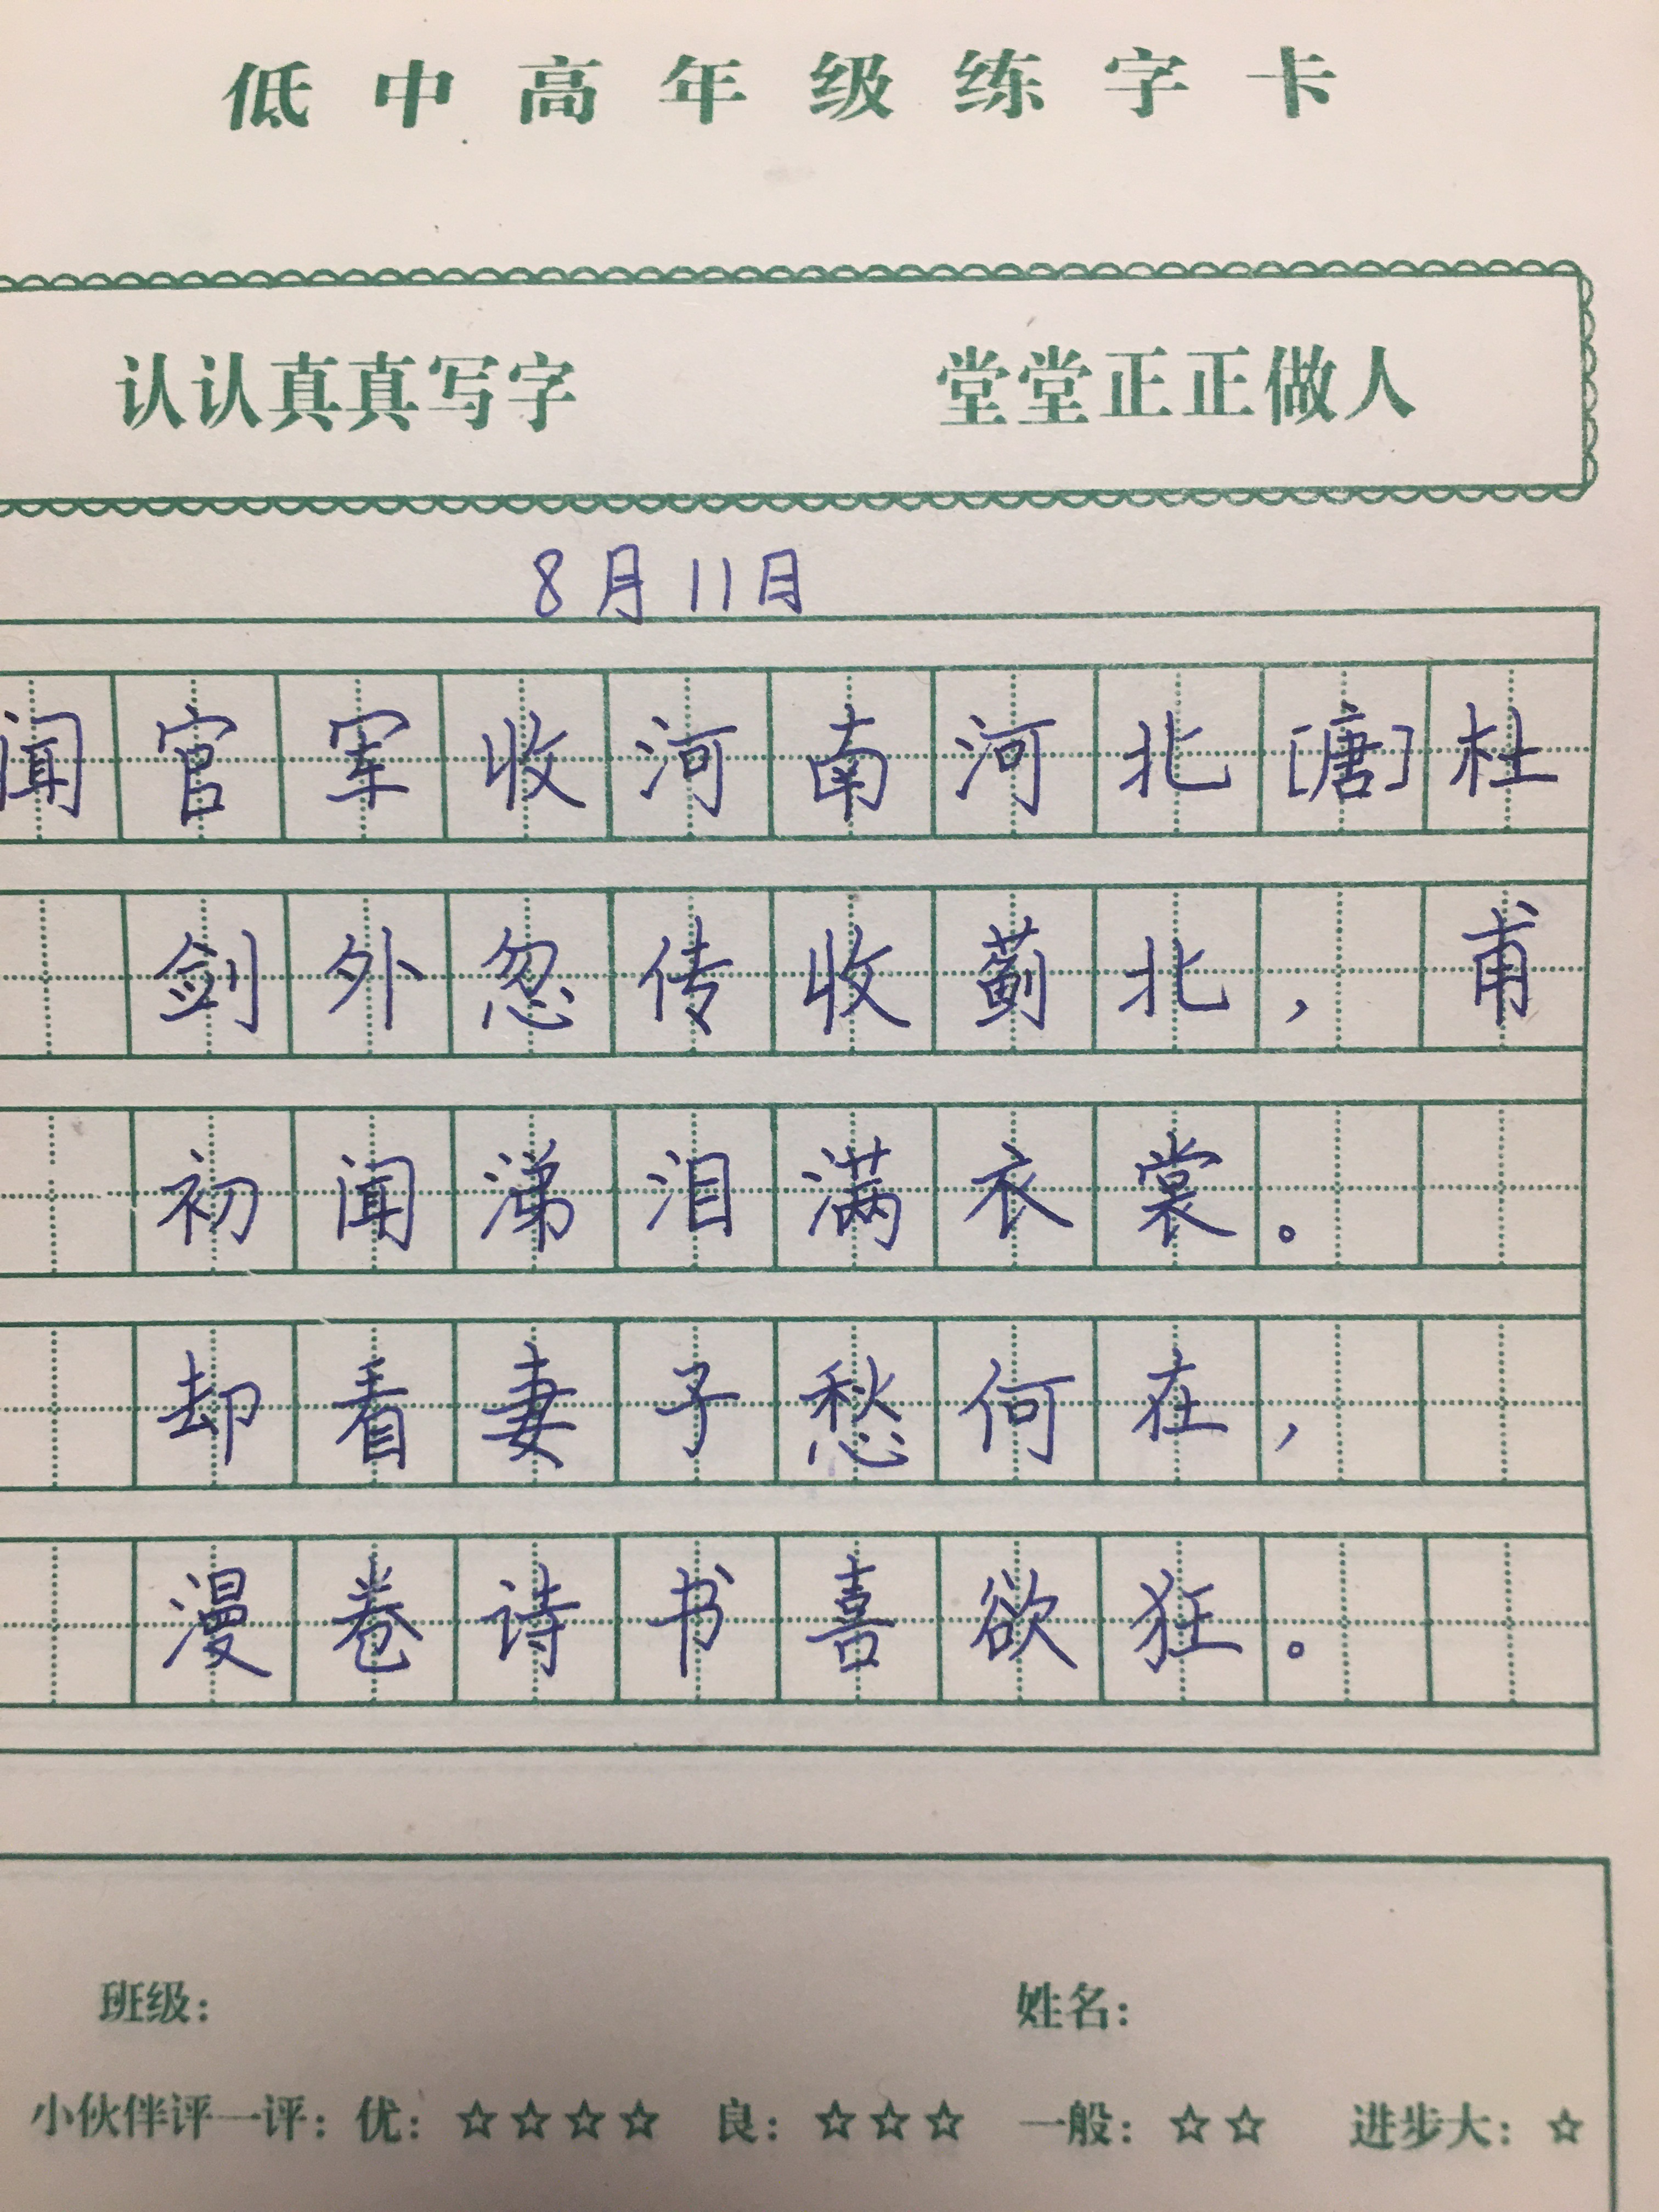 低中高年级练字卡
认认真真写字 堂堂正正做人
8月11日
闻官军收河南河北[唐]杜
剑外忽传收蓟北，甫
初闻涕泪满衣裳。
却看妻子愁何在，
漫卷诗书喜欲狂。
班级： 姓名：
小伙伴评一评：优：☆☆☆☆ 良：☆☆☆ 一般：☆☆ 进步大：☆